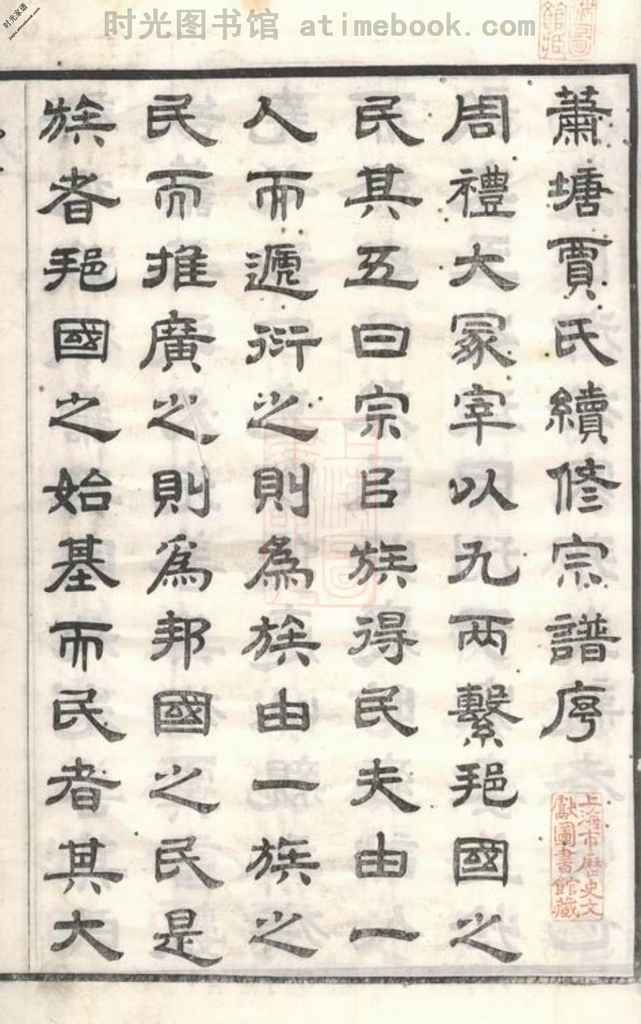 时光图书馆 atimebook.com
蕭塘賈氏續修宗譜序
周禮大冢宰以九兩繫邦國之
民其五曰宗以族得民夫由一
人而遞衍之則為族由一族之
民而推廣之則為邦國之民是
族者邦國之始基而民者其大
上海市歷史文
獻圖書館藏